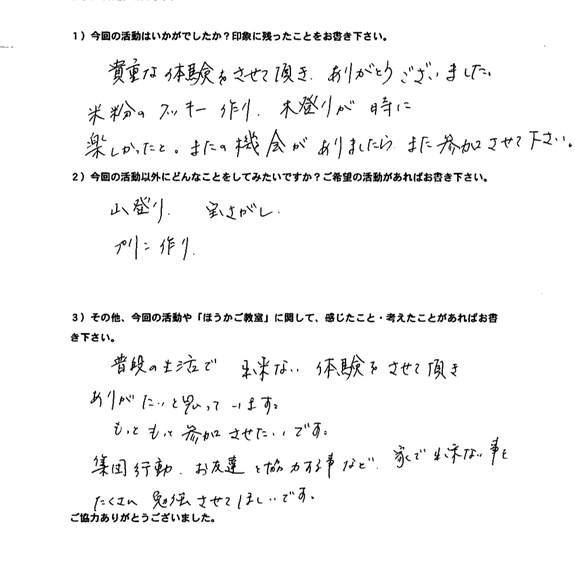 1）今回の活動はいかがでしたか？印象に残ったことをお書き下さい。
貴重な体験をさせて頂き、ありがとうございました。
米粉のクッキー作り、木登りが 時に
楽しかったと。またの機会が ありましたら、また参加させて下さい。
2）今回の活動以外にどんなことをしてみたいですか？ご希望の活動があればお書き下さい。
山登り、 宝さがし、
プリン作り、
3）その他、今回の活動や「ほうかご教室」に関して、感じたこと・考えたことがあればお書
き下さい。
普段の生活で 出来ない 体験をさせて頂き
ありがたいと思っています。
もっともっと参加させたいです。
集団行動、お友達と協力する事など、家で出来ない事を
たくさん 勉強させてほしいです。
ご協力ありがとうございました。